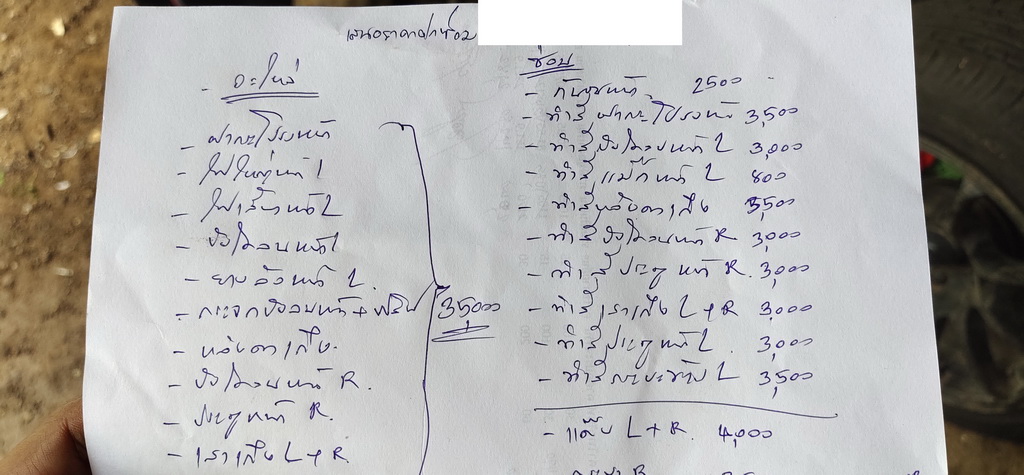 เสนอราคาค่าซ่อม
อะไหล่
- ฝากระโปรงหน้า
- ไฟใหญ่หน้า L
- ไฟเลี้ยวหน้า L
- บังโคลนหน้า L
- ยาง หน้า L.
- กระจกบังลมหน้า +
- หลังคาเก๋ง.
- บังโคลนหน้า R.
- ประตูหน้า R.
- เสาเก๋ง L + R
35,000
ซ่อม
- กันชนหน้า. 2500
- ทำสีฝากระโปรงหน้า 3,500
- ทำสีบังโคลนหน้า L 3,000
- ทำสี หน้า L 800
- ทำสีหลังคาเก๋ง 3,500
- ทำสีบังโคลนหน้า R 3,000
- ทำสีประตูหน้า R. 3,000
- ทำสีเสาเก๋ง L + R 3,000
- ทำสีประตูหน้า L. 3,000
- ทำสีกระบะข้าง L 3,500
- แค๊บ L + R. 4,000